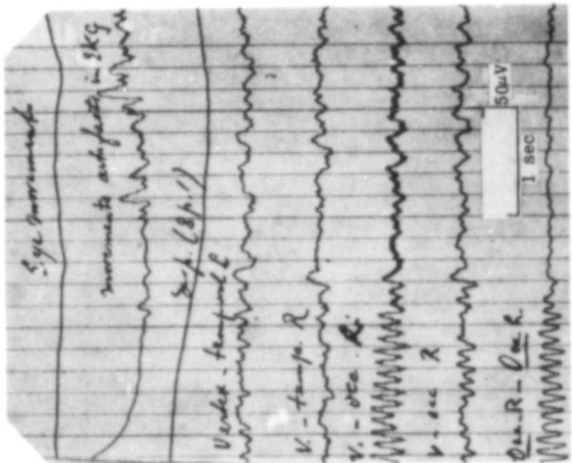 Eye movements
movements artefacts in EKG
resp. (8 p. 1)
Vertex - temporal L
V. - temp. R
V. - occ. R.
V - occ R
Occ. R - Occ. R.
50μV
1 sec